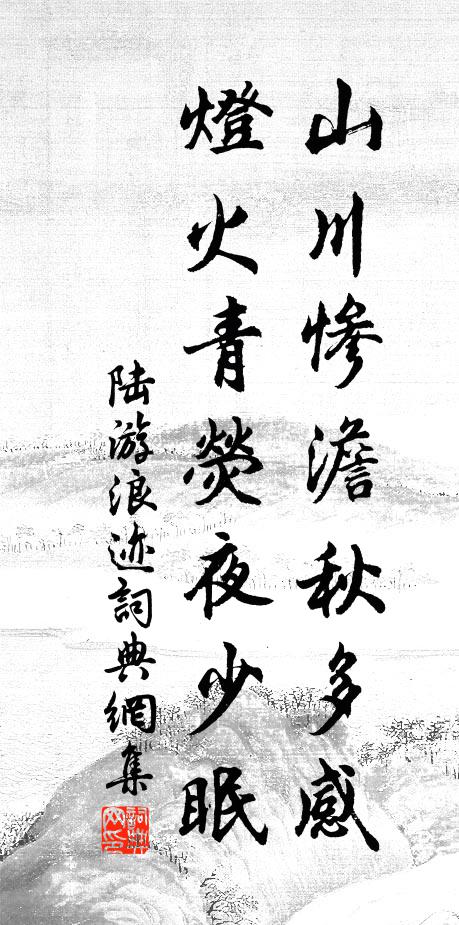 山川慘澹秋多感
燈火青熒夜少眠
陸游浪迹詞典網集